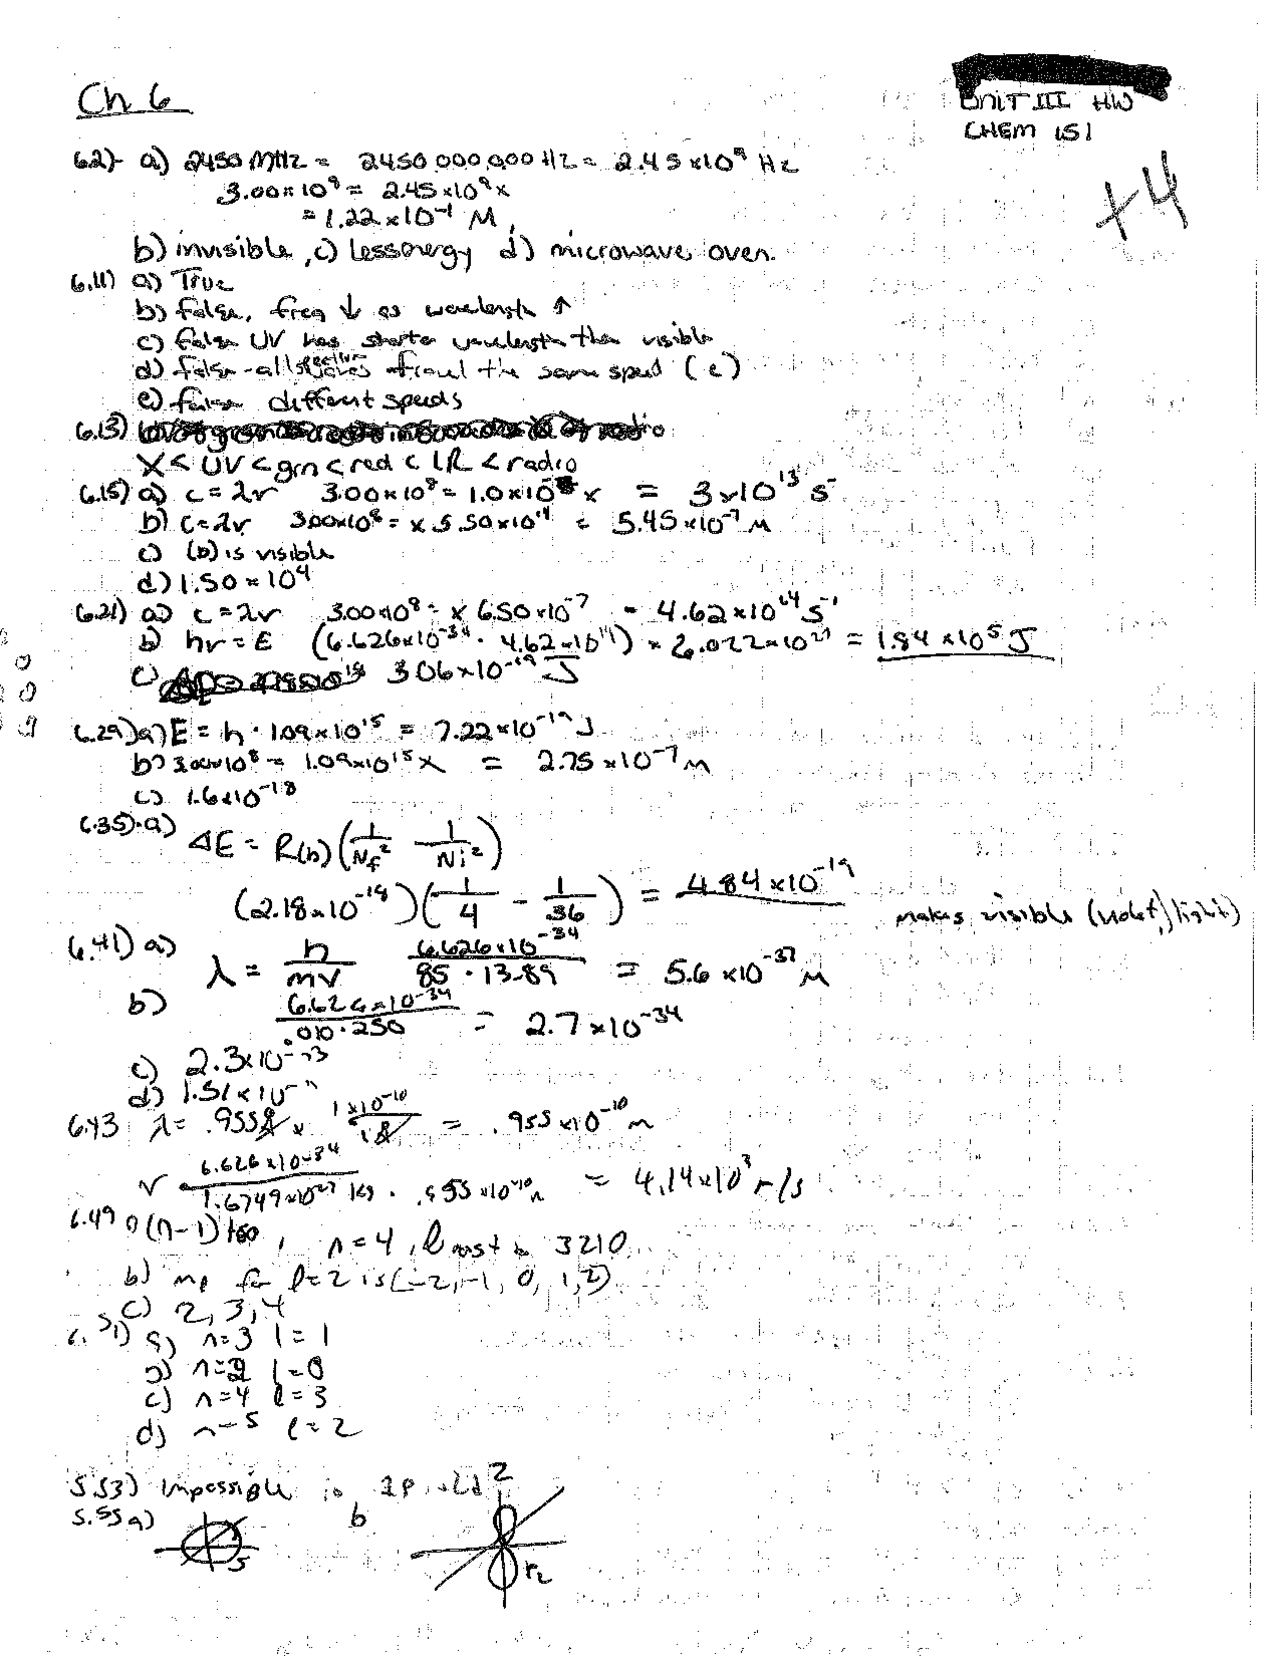 Ch 6
UNIT III HW
CHEM 151
+4
6.2)- a) 2450 MHz = 2450,000,000 Hz = 2.45 x 10⁹ Hz
3.00 x 10⁸ = 2.45 x 10⁹ x
= 1.22 x 10⁻¹ M
b) invisible, c) less energy d) microwave oven.
6.11) a) True
b) False, freq ↓ as wavelength ↑
c) false UV has shorter wavelength than visible
d) false - all waves travel the same speed (c)
e) false different speeds
6.13)
X < UV < grn < red < IR < radio
6.15) a) c = λν 3.00 x 10⁸ = 1.0 x 10 x = 3 x 10¹³ s⁻
b) c = λν 3.00x10⁸ = x 5.50 x 10¹⁴ = 5.45 x 10⁻⁷ M
c) (b) is visible
d) 1.50 x 10⁴
6.21) a) c = λν 3.00 x 10⁸ = x 6.50 x 10⁻⁷ = 4.62 x 10¹⁴ s⁻¹
b) hν = E (6.626 x 10⁻³⁴ · 4.62 x 10¹⁴) x 6.022 x 10²³ = 1.84 x 10⁵ J
c) 3.06 x 10⁻¹⁹ J
6.29) a) E = h · 1.09 x 10¹⁵ = 7.22 x 10⁻¹⁹ J
b) 3.00x10⁸ = 1.09x10¹⁵ x = 2.75 x 10⁻⁷ m
c) 1.6x10⁻¹⁸
6.35). a) ΔE = R(h) (1/Nf² - 1/Ni²)
(2.18 x 10⁻¹⁸)(1/4 - 1/36) = 4.84 x 10⁻¹⁹
makes visible (violet) light)
6.41) a) λ = h/mv 6.626 x 10⁻³⁴ / 85 · 13.89 = 5.6 x 10⁻³⁷ M
b) 6.626 x 10⁻³⁴ / .010 · 250 = 2.7 x 10⁻³⁴
c) 2.3x10
d) 1.51 x 10
6.43 λ = .955Å x 1 x 10⁻¹⁰ / 1Å = .955 x 10⁻¹⁰ m
v 6.626 x 10⁻³⁴ / 1.6749x10⁻²⁷ kg · .955 x 10⁻¹⁰ m = 4.14 x 10³ m/s
6.49 (n-1) too, n = 4, l must be 3210
b) ml for l = 2 is (-2, -1, 0, 1, 2)
c) 2, 3, 4
6.51) a) n=3 l = 1
b) n=2 l=0
c) n=4 l=3
d) n=5 l=2
5.53) Impossible is 2d
5.55 a) b
s
z